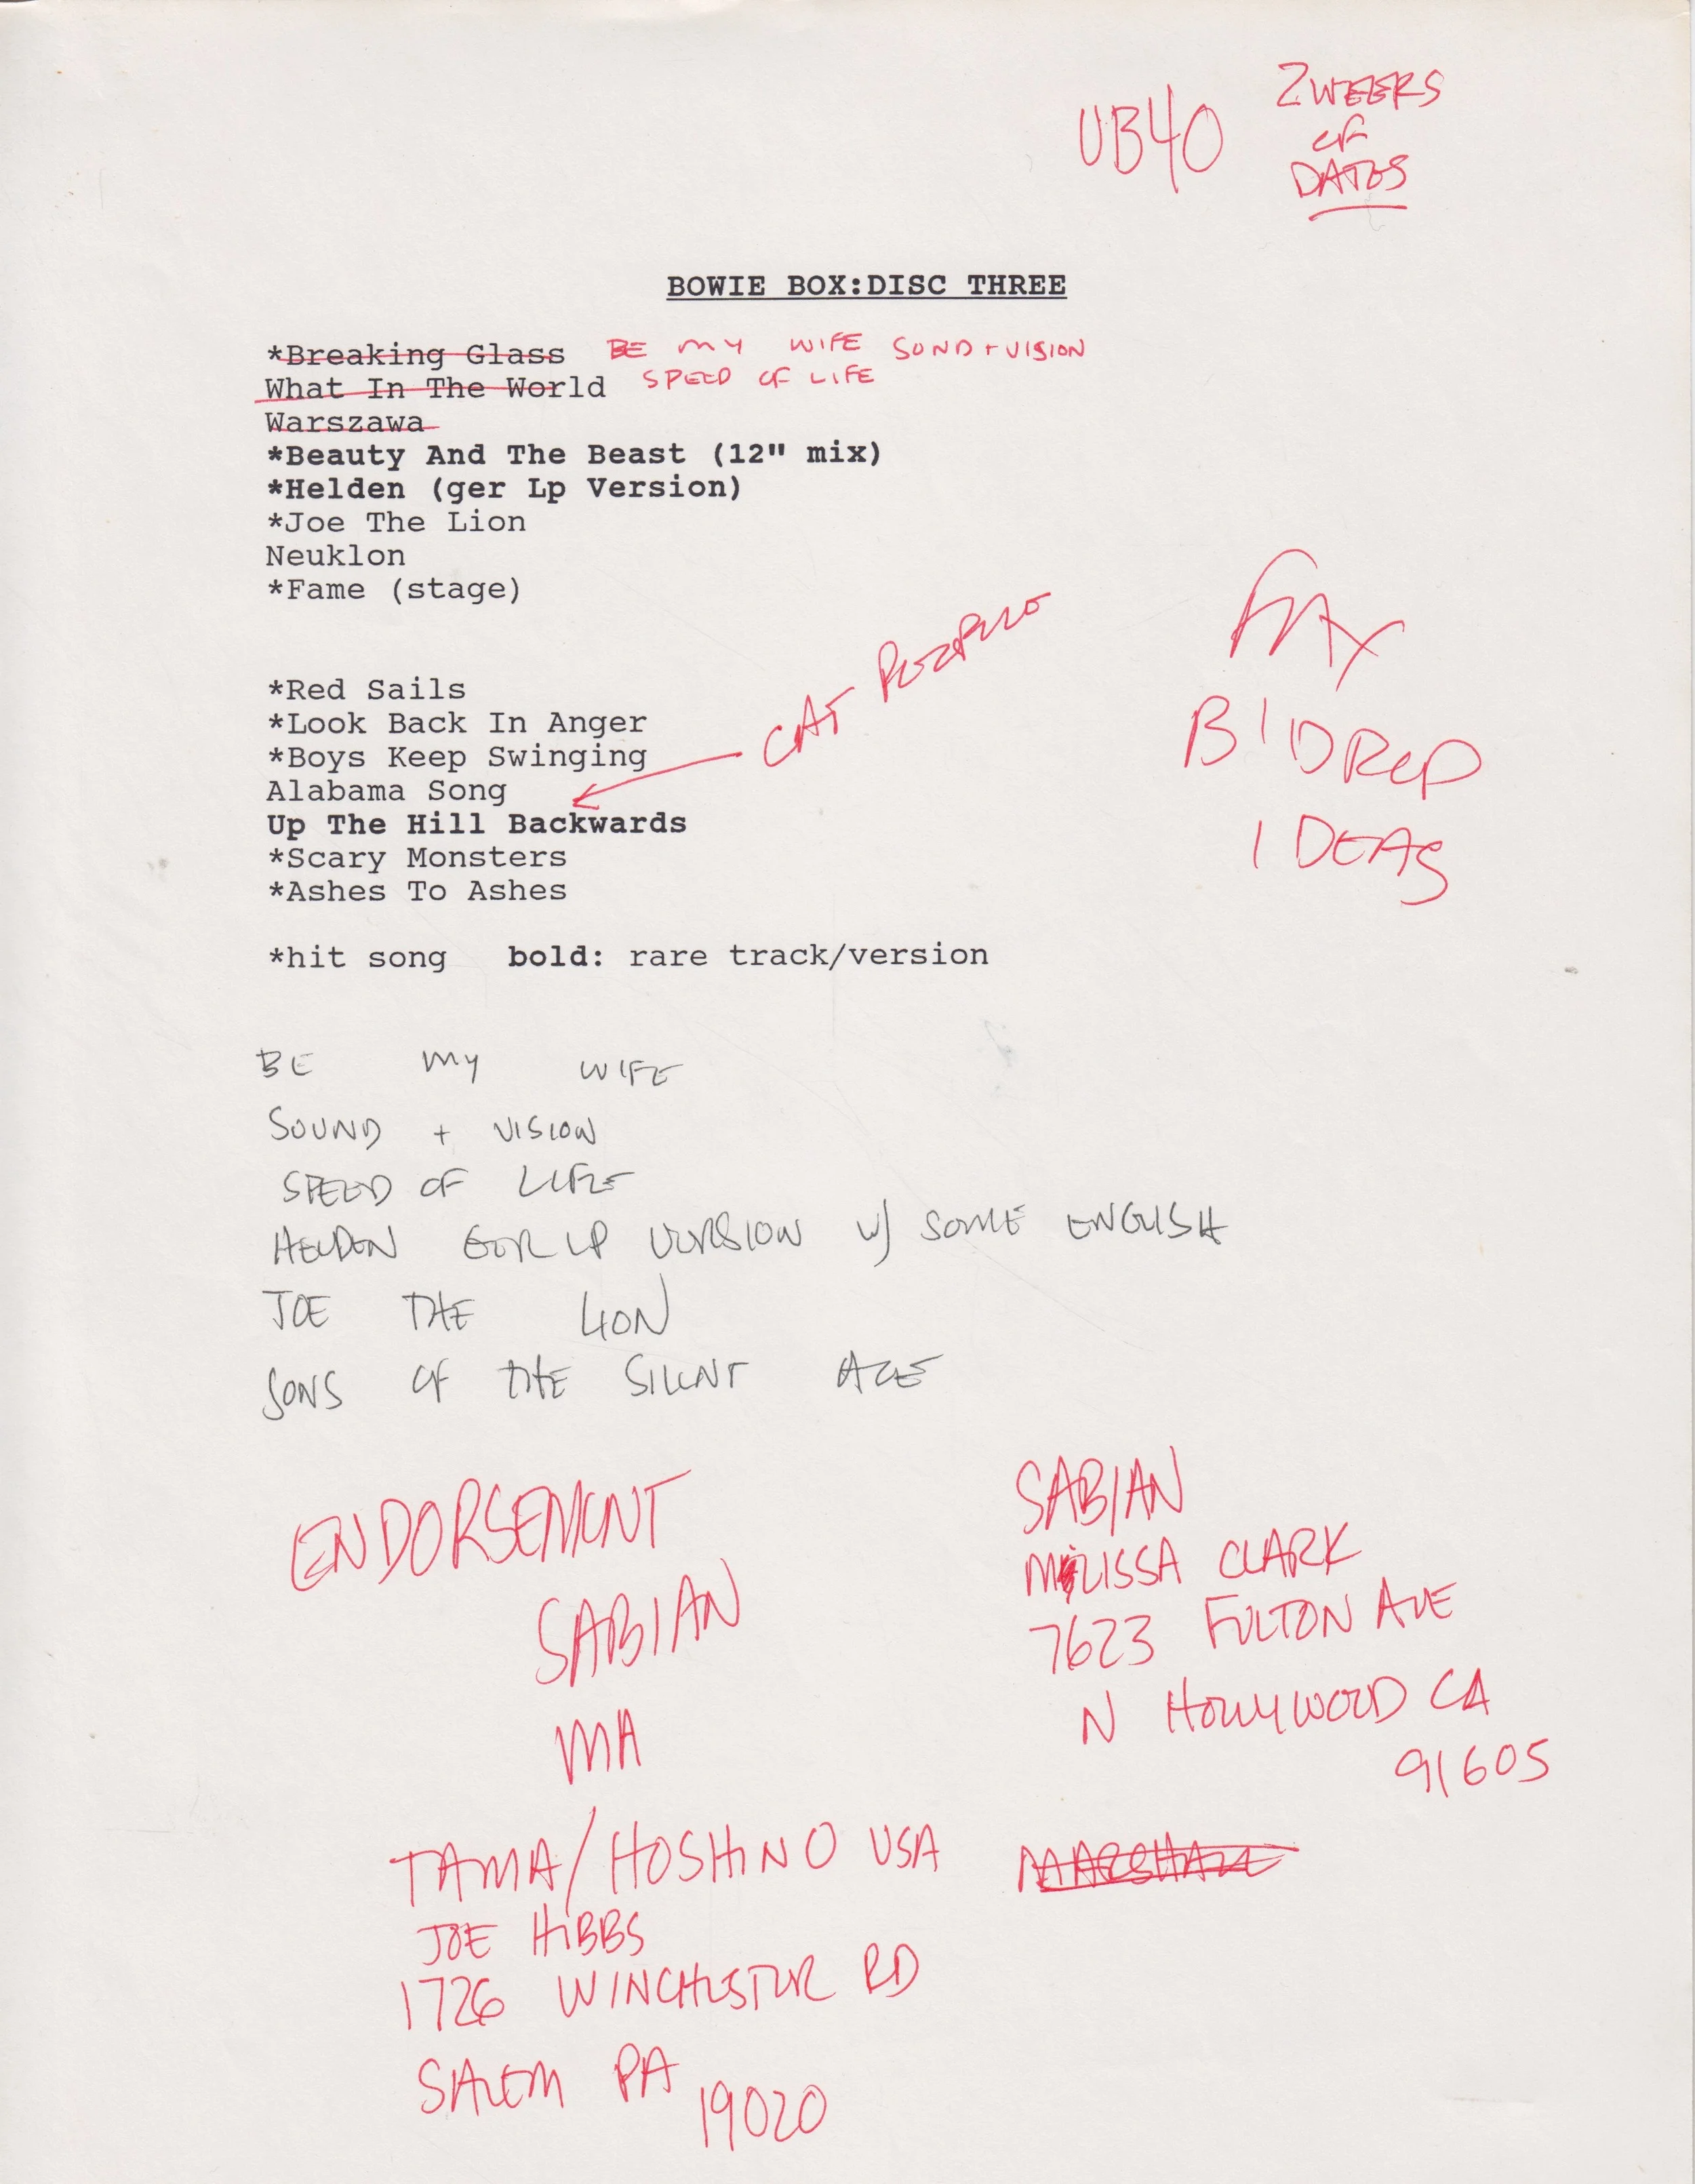 UB40
2 WEEKS
OF
DATES
BOWIE BOX:DISC THREE
*Breaking Glass BE MY WIFE SOND + VISION
What In The World SPEED OF LIFE
Warszawa
*Beauty And The Beast (12" mix)
*Helden (ger Lp Version)
*Joe The Lion
Neuklon
*Fame (stage)
*Red Sails
*Look Back In Anger
*Boys Keep Swinging
CAT PEOPLE
Alabama Song
Up The Hill Backwards
*Scary Monsters
*Ashes To Ashes
FAX
B'DROP
IDEAS
*hit song bold: rare track/version
BE MY WIFE
SOUND + VISION
SPEED OF LIFE
HELDEN GER LP VERSION W/ SOME ENGLISH
JOE THE LION
SONS OF THE SILENT AGE
ENDORSEMENT
SABIAN
MA
SABIAN
MELISSA CLARK
7623 FULTON AVE
N HOLLYWOOD CA
91605
TAMA/HOSHINO USA
JOE HIBBS
1726 WINCHESTER RD
SALEM PA
19020
MARSHALL